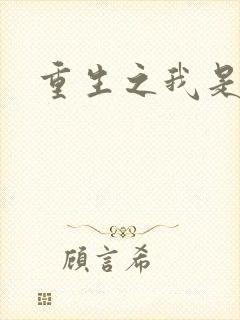 重生之我是
顧言希